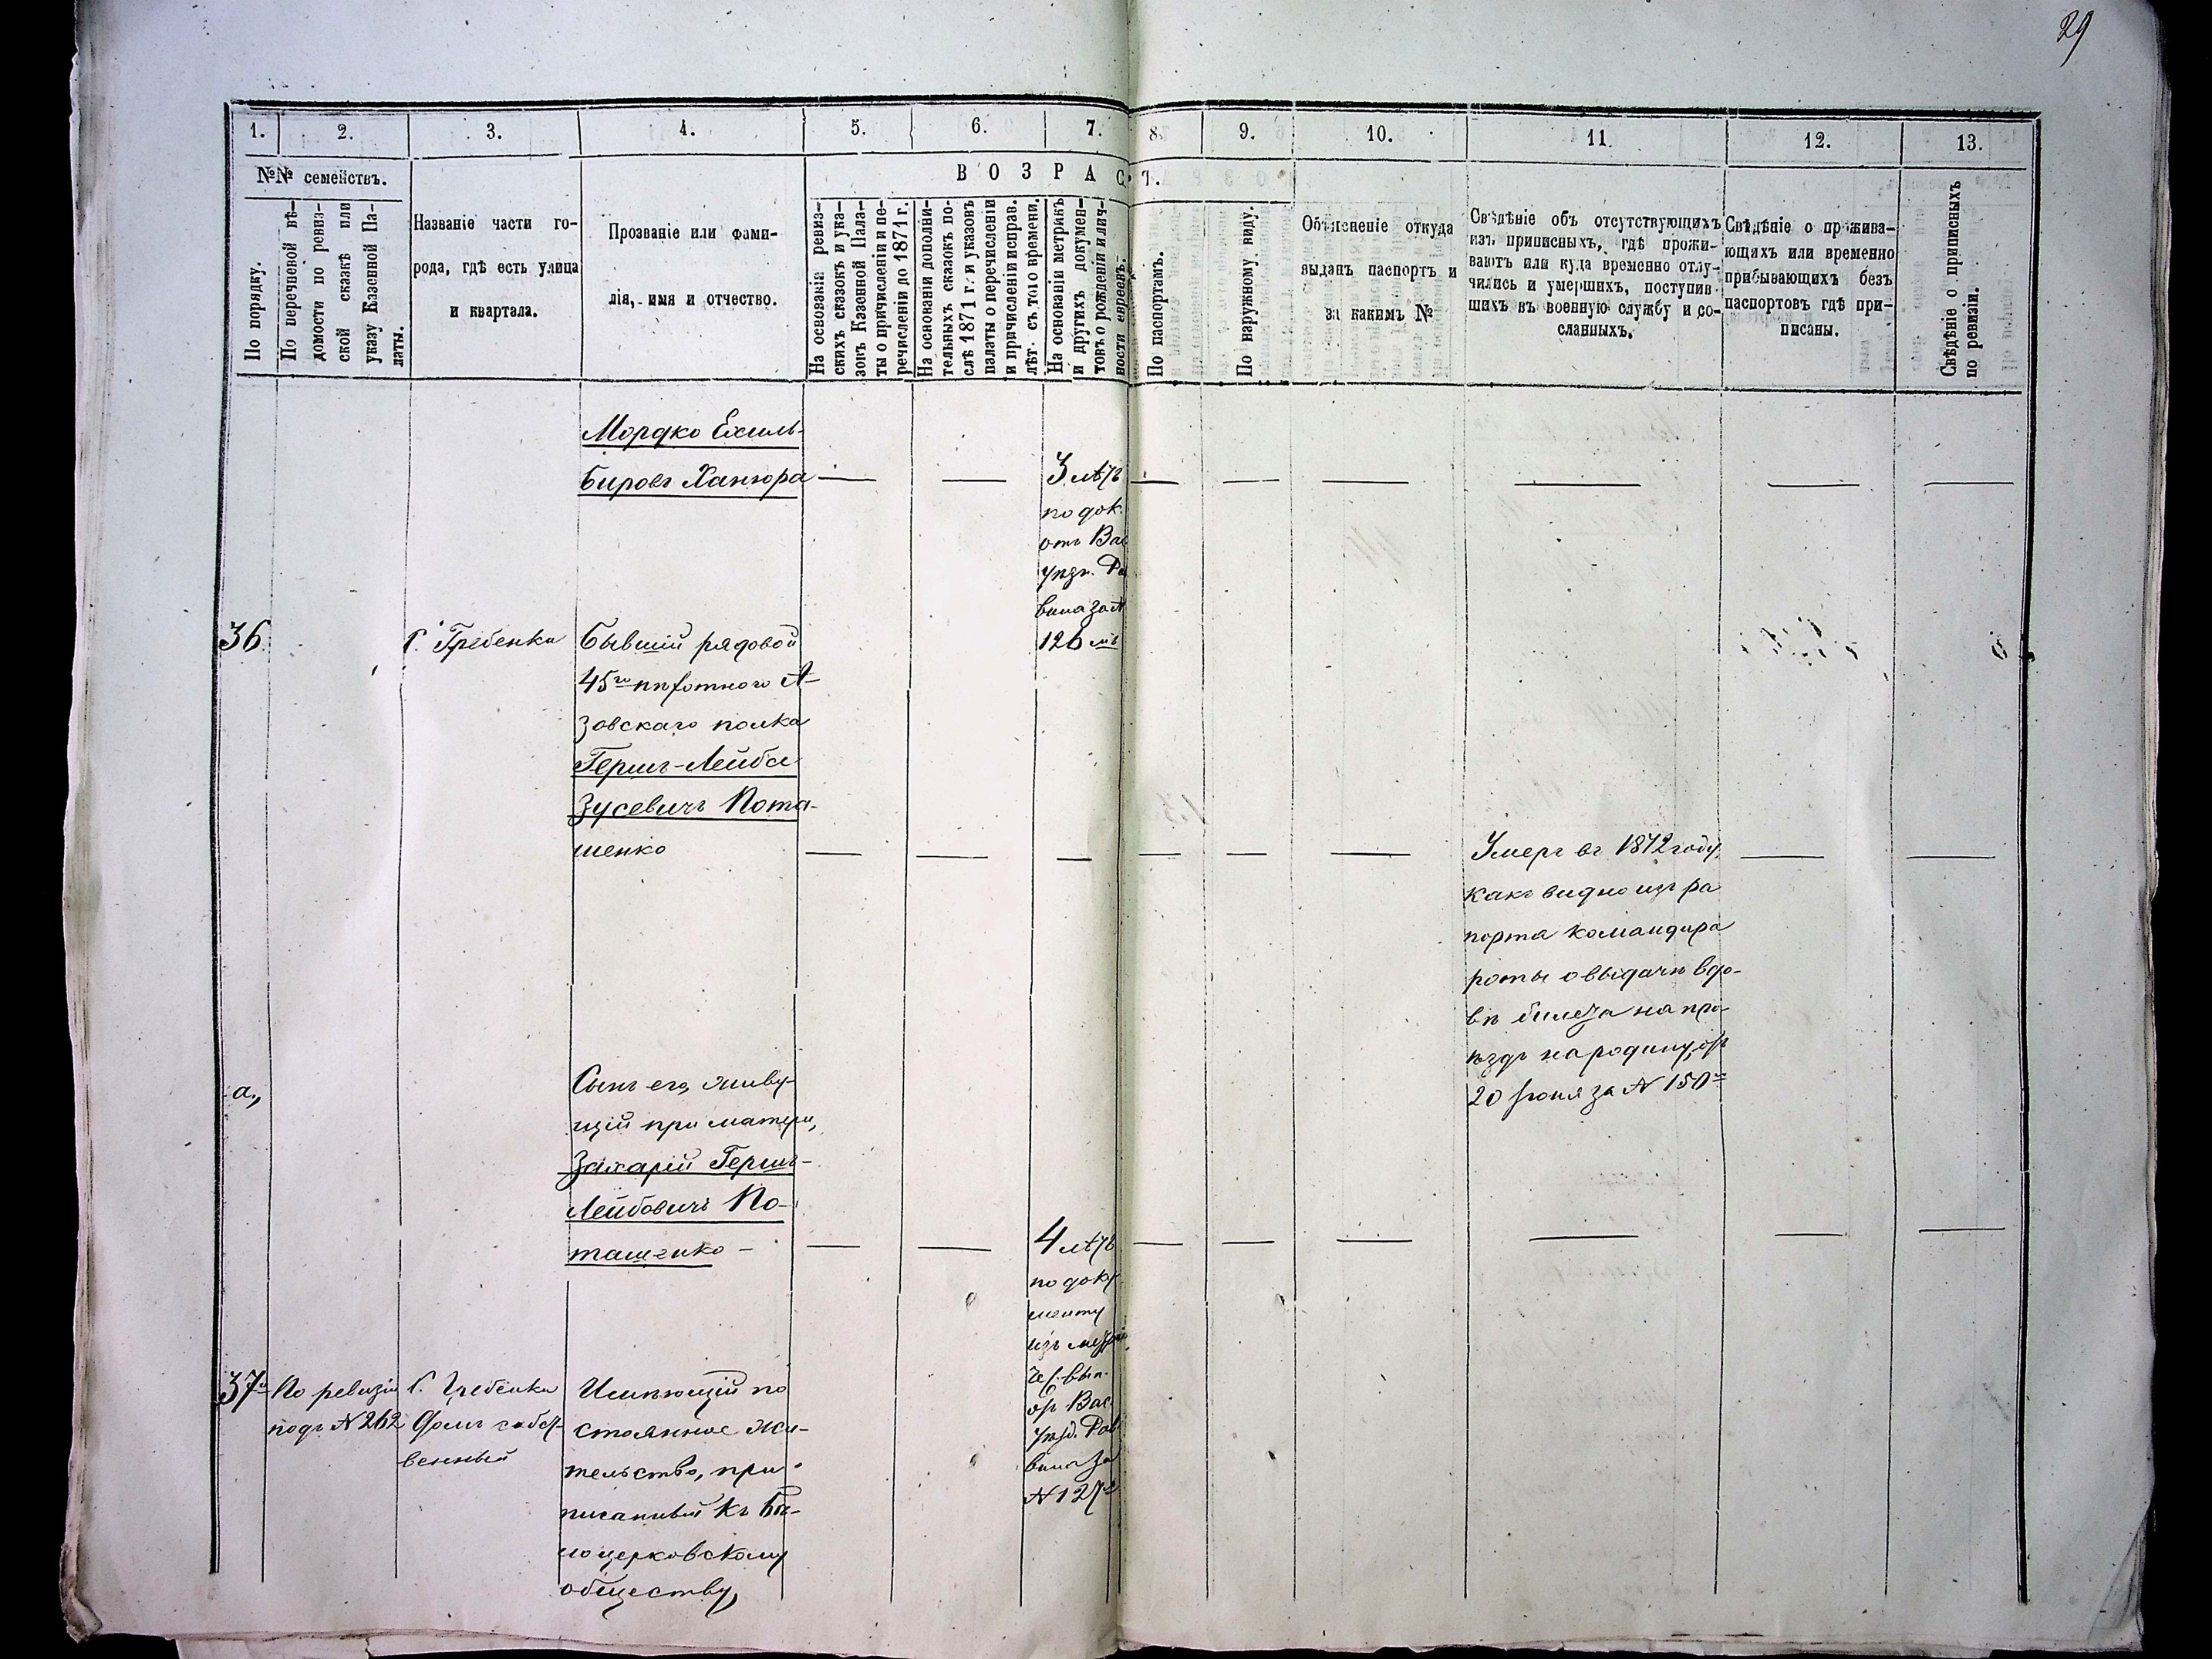 29
1. 2. 3. 4. 5. 6. 7. 8. 9. 10. 11. 12. 13.
№№ семействъ.
ВОЗРАСТ.
По порядку.
По перечневой вѣ-
домости по ревиз-
ской сказкѣ или
указу Казенной Па-
латы.
Названіе части го-
рода, гдѣ есть улица
и квартала.
Прозваніе или фами-
лія, имя и отчество.
На основаніи ревиз-
скихъ сказокъ и ука-
зокъ Казенной Пала-
ты о причисленіи и пе-
речисленіи до 1871 г.
На основаніи дополни-
тельныхъ сказокъ по-
слѣ 1871 г. и указовъ
палаты о перечисленіи
и причисленіи исправ.
лѣт. съ того времени.
На основаніи метрикъ
и другихъ докумен-
товъ о рожденіи и лич-
ности евреевъ.
По паспортамъ.
По наружному виду.
Объясненіе откуда
выданъ паспортъ и
за какимъ №
Свѣдѣніе объ отсутствующихъ
изъ приписныхъ, гдѣ прожи-
ваютъ или куда временно отлу-
чились и умершихъ, поступив-
шихъ въ военную службу и со-
сланныхъ.
Свѣдѣніе о прожива-
ющихъ или временно
прибывающихъ безъ
паспортовъ гдѣ при-
писаны.
Свѣдѣніе о приписныхъ
по ревизіи.
Мордко Ехиль-
Бировъ Ханюра — — 3 лѣтъ — — — — — —
по док.
отъ Вас
уѣзд. Ра
вина за №
126 мъ
36 Г. Гребенки
Бывшій рядовой
45го пѣхотнаго А-
зовскаго полка
Гершъ-Лейба
Зусевичъ Пота-
шенко — — — — — —
Умеръ въ 1872 году,
какъ видно изъ ра
порта командира
роты о выдачѣ вдо-
вѣ билета на про-
ѣздъ на родину, отъ
20 Іюня за № 150
— —
а,
Сынъ его, живу-
щій при матери,
Захарій Гершъ-
Лейбовичъ По-
ташенко — — — 4 лѣтъ — — — — — —
по доку
менту
изъ
отъ Вас
уѣзд. Рав
вина за
№ 127
37 По ревизіи
подъ № 262
Г. Гребенки
Домъ собст-
венный
Имѣющій по
стоянное жи-
тельство, при
писанный къ Бѣ-
лоцерковскому
обществу,